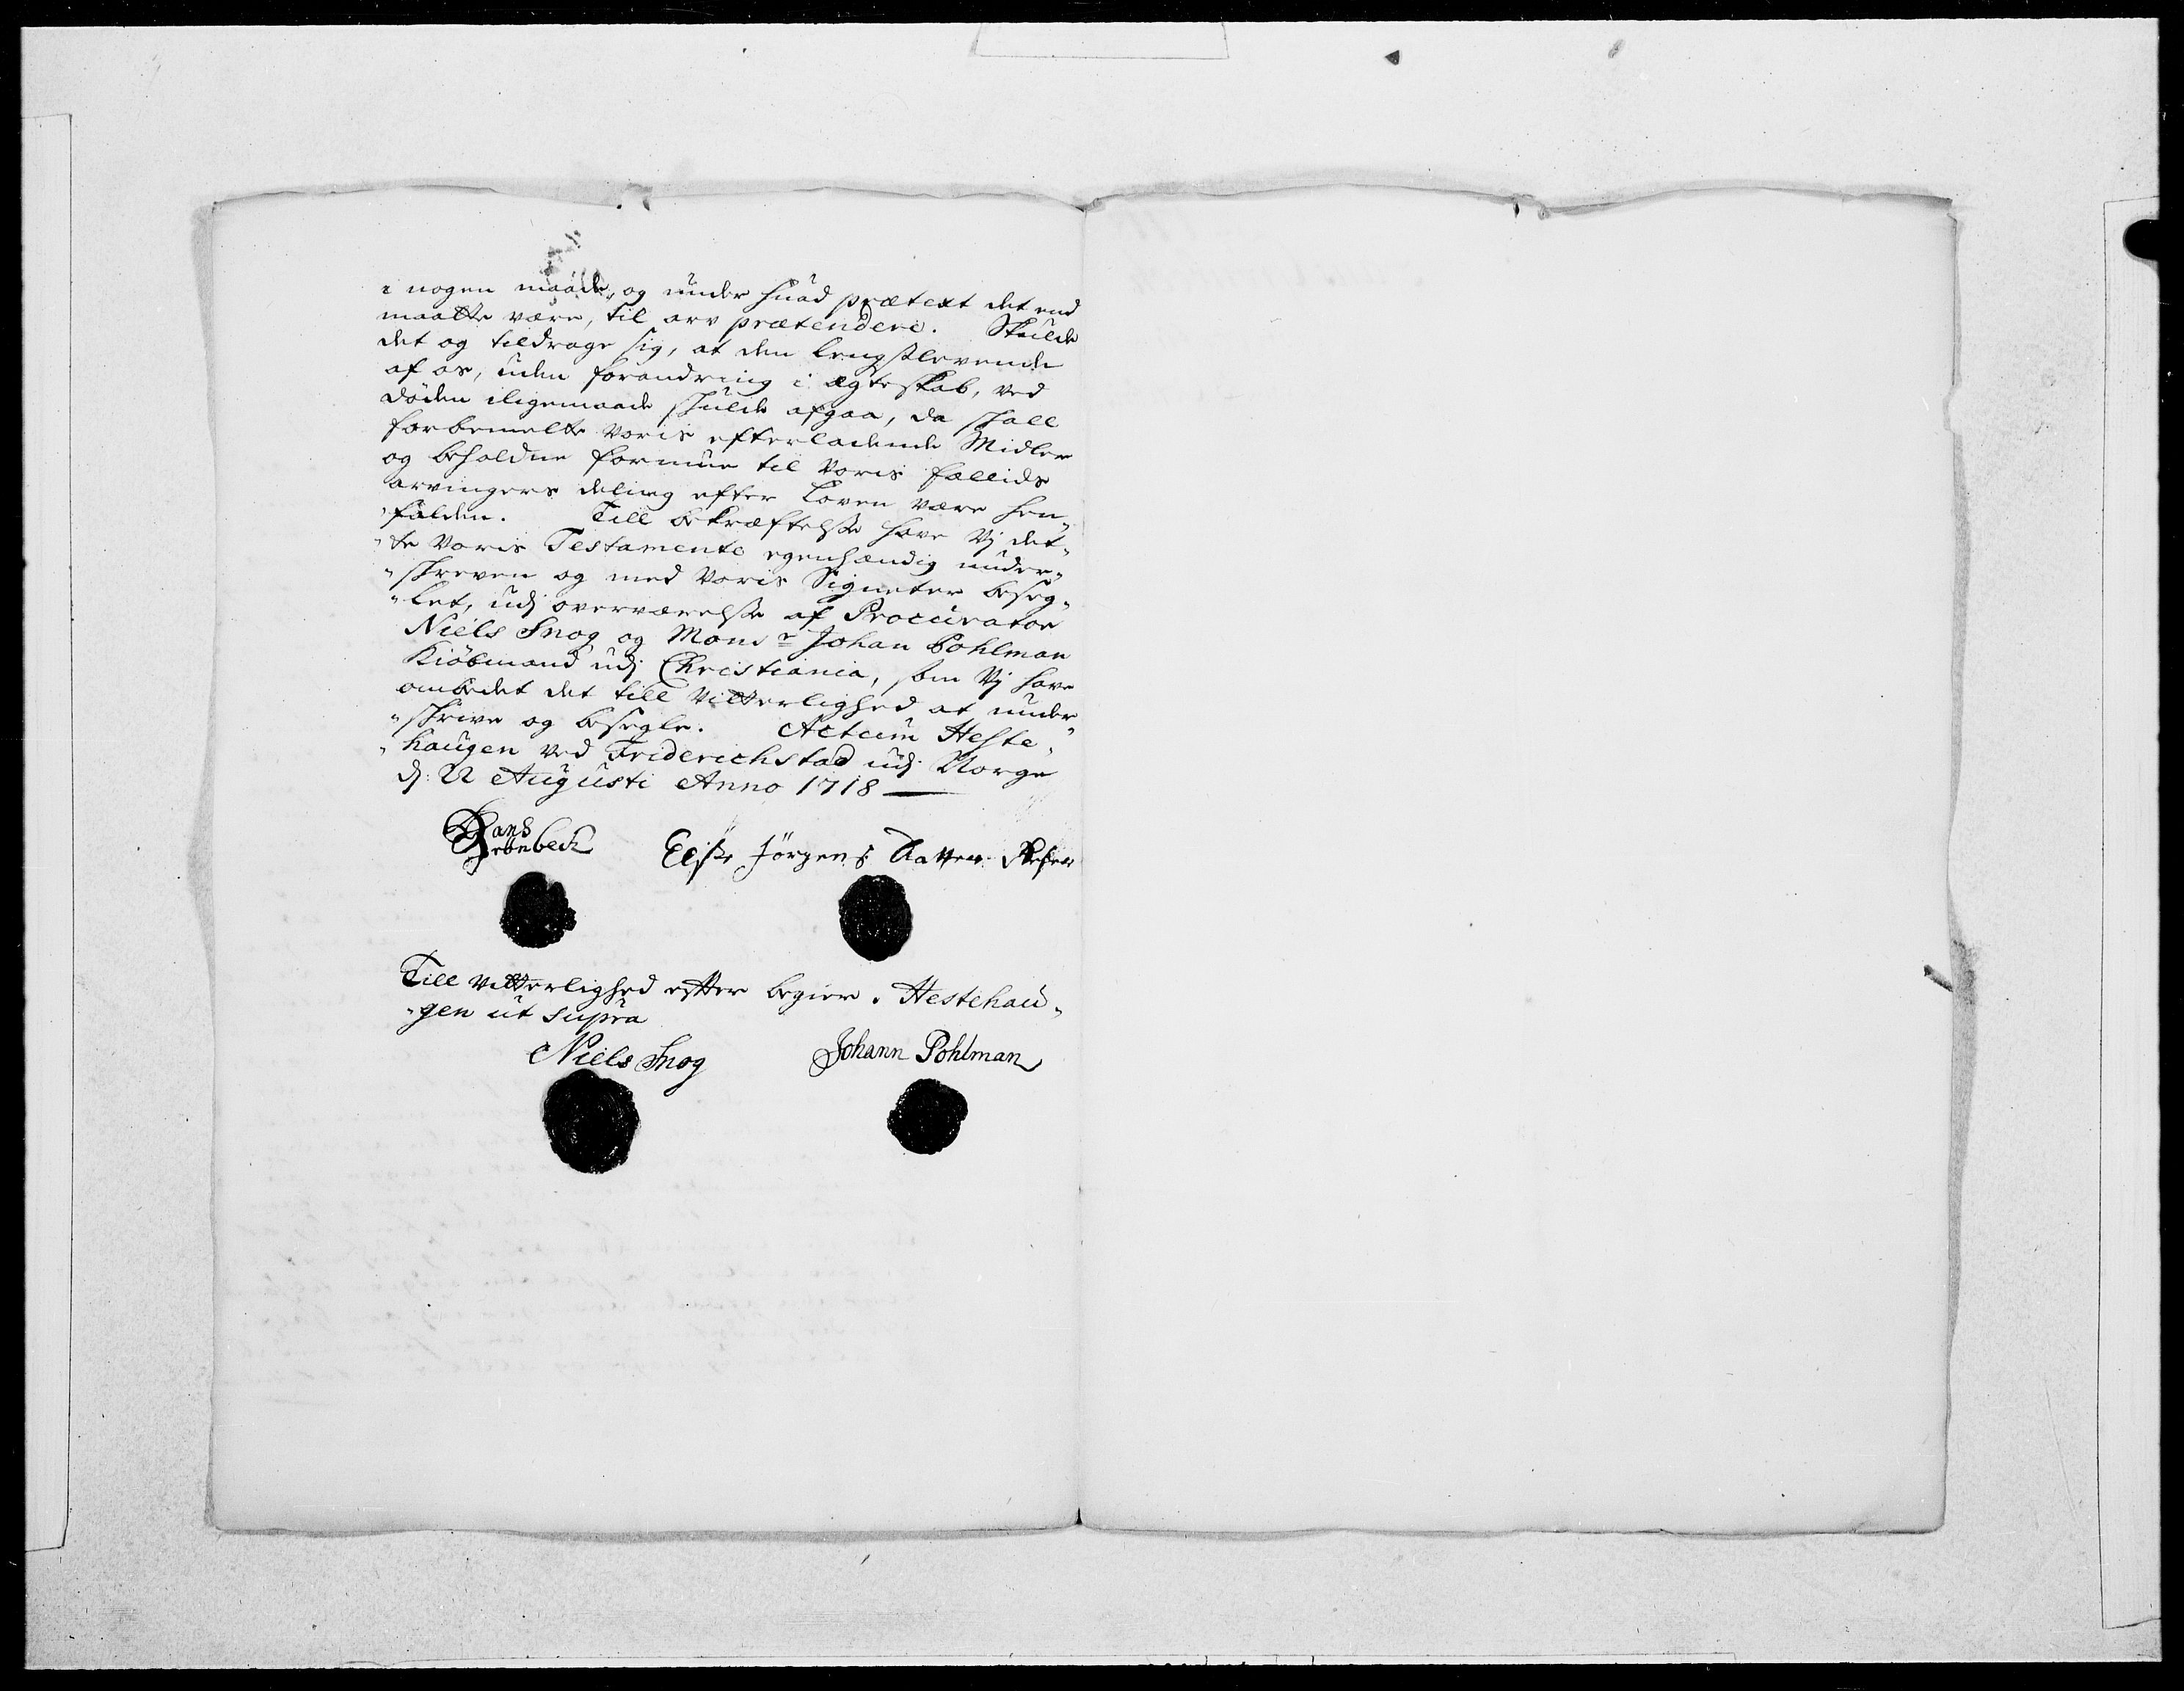 i nogen maade, og under huad prætext det end
maatte være, til arv prætendere. Skulde
det og tildrage sig, at den lengstlevende
af os, uden forandring i ægteskab, ved
døden iligemaade skulde afgaa, da skall
forbemelte voris efterladende Midler
og beholdne formue til voris fællids
arvingers deling efter Loven være hen„
„falden. Till bekræftelsse have Vj det„
„te voris Testamente egenhændig under„
„skreven og med voris Signeter beseg„
„let, udj overværelsse af Procurator
Niels Snog og Monsr Johan Pohlman
Kiøbmand udj Christiania, som Vj have
ombedet det till Vitterlighed at under„
„skrive og besegle. Actum Heste„
„haugen ved Friderichstad udj Norge
dj: 22 Augusti Anno 1718
Hans Grønbech Elsse Jørgens Datter
Till vitterlighed efter begier. Hestehau„
„gen ut supra
Niels Snog Johann Pohlman